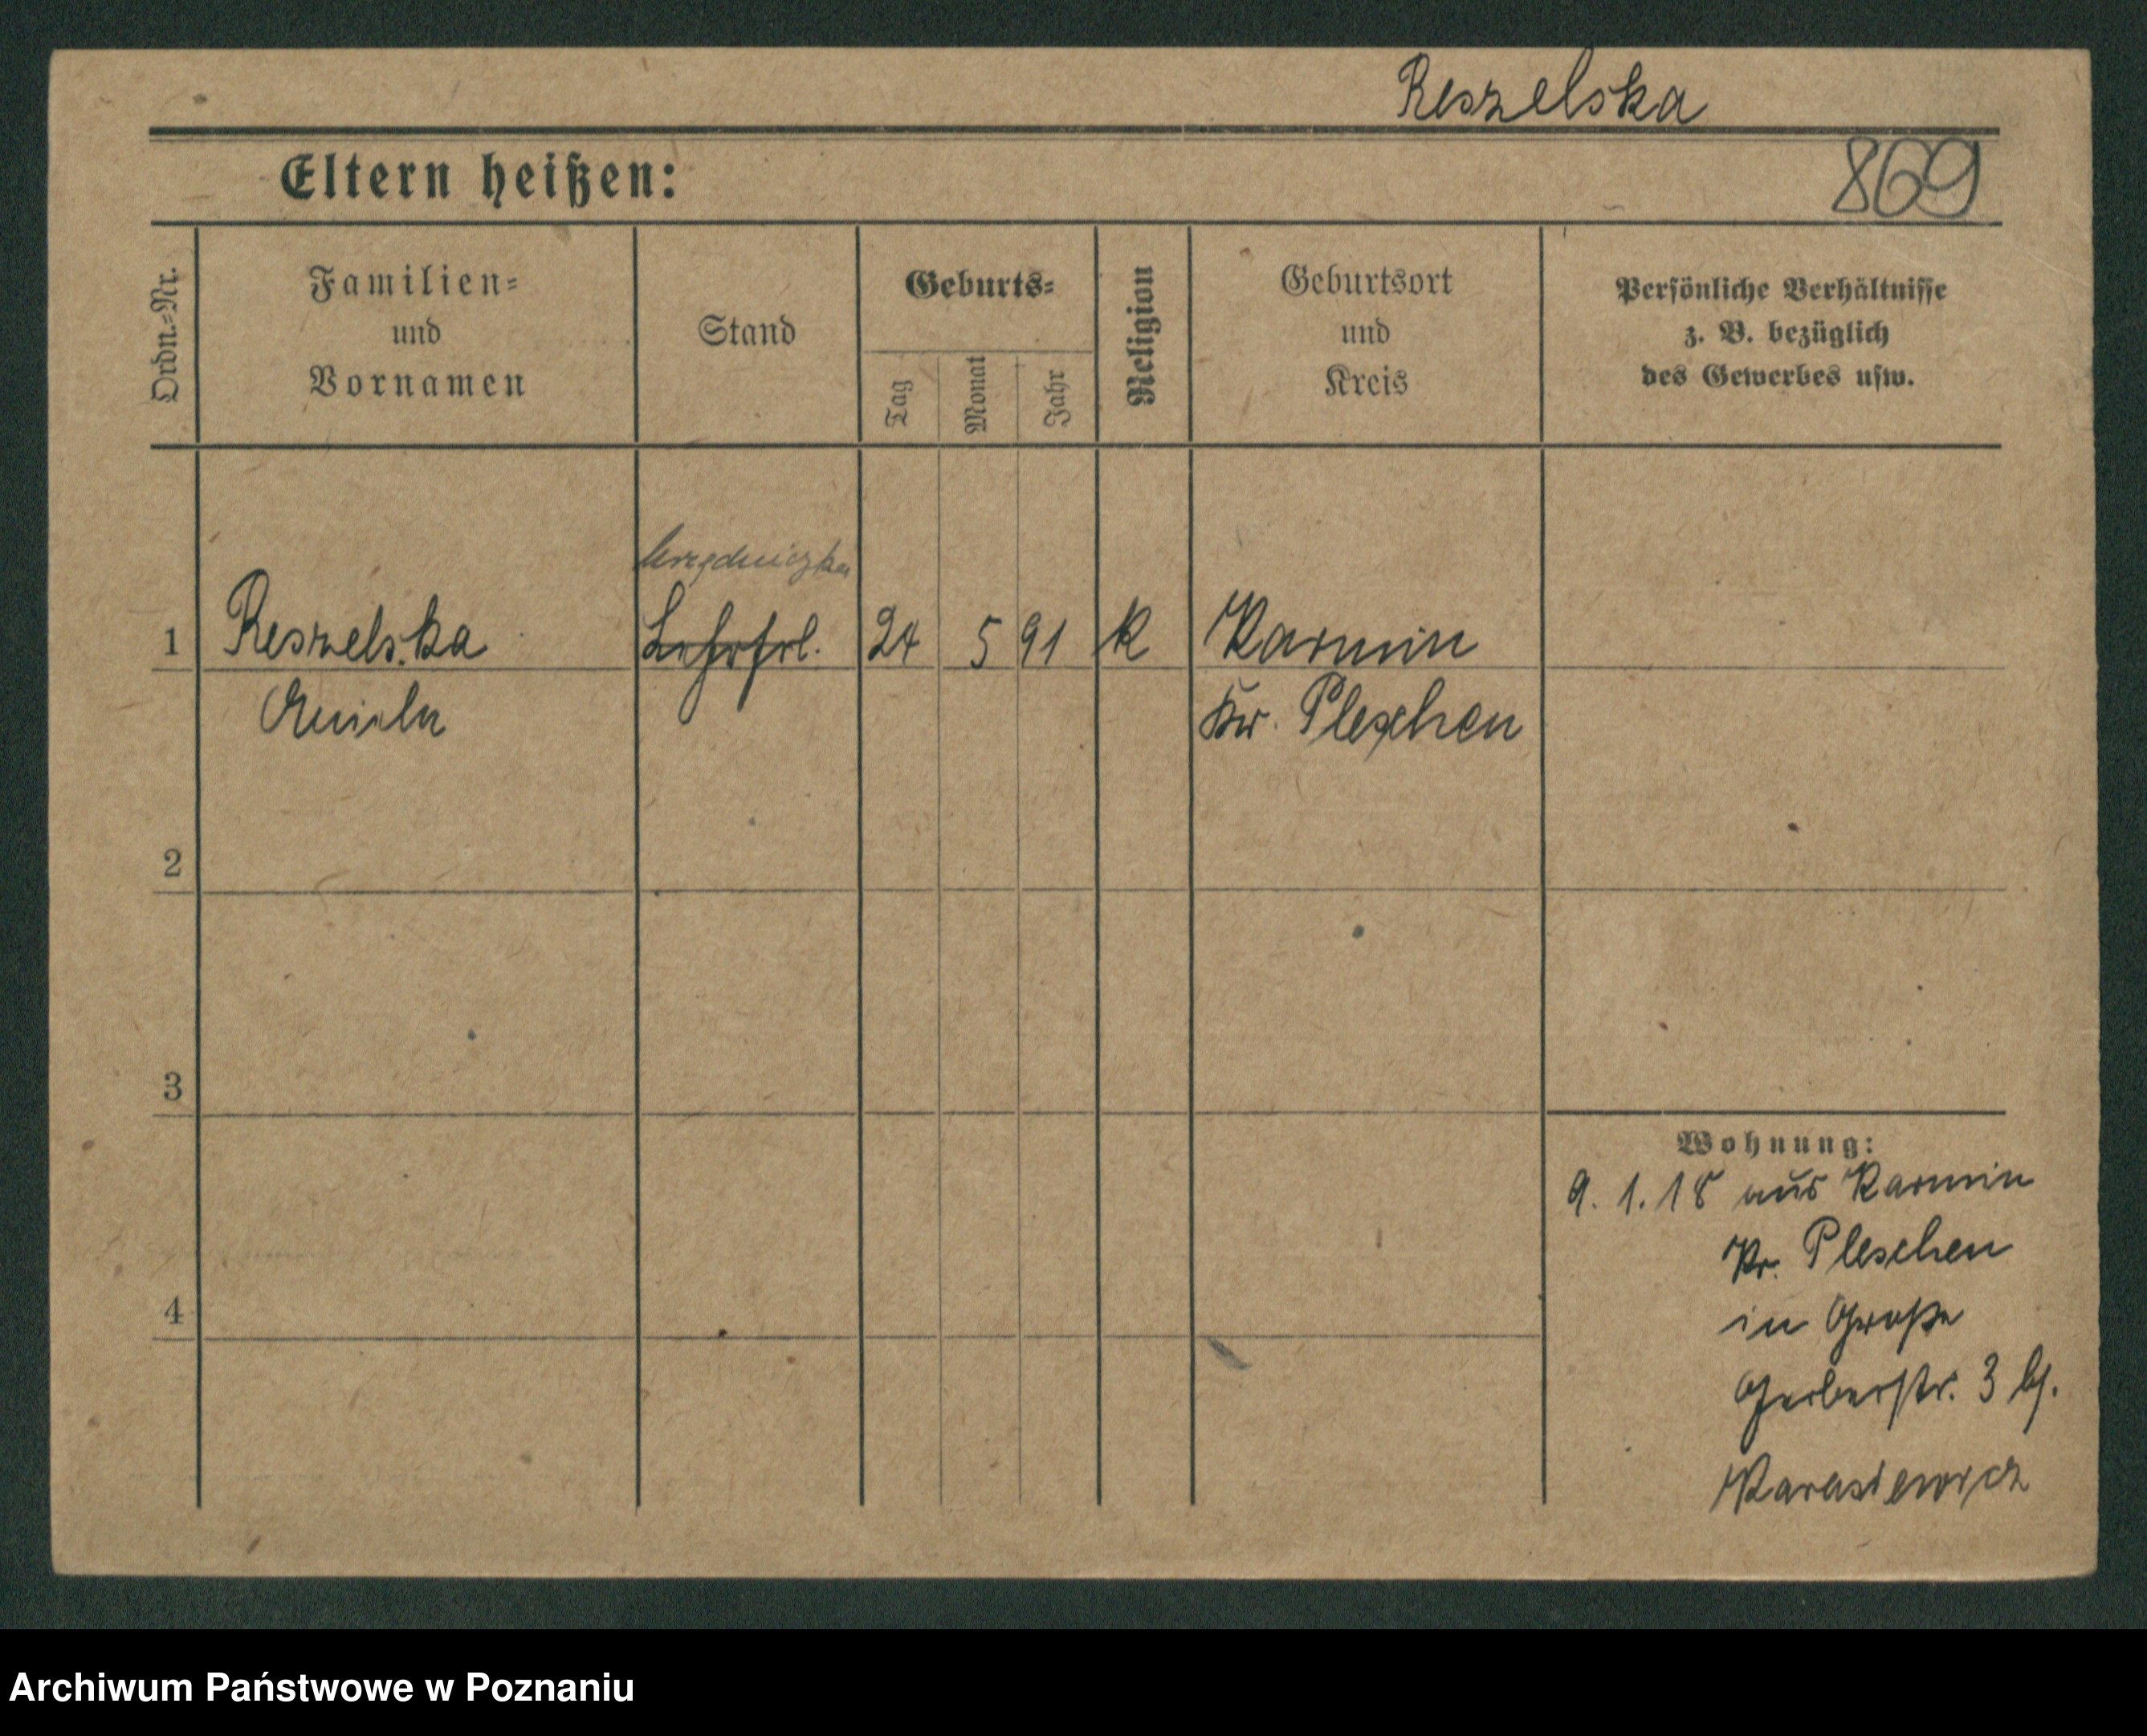 Reszelska
Eltern heißen:
869
Ordn.=Nr.
Familien=
und
Vornamen
Stand
Geburts=
Tag
Monat
Jahr
Religion
Geburtsort
und
Kreis
Persönliche Verhältnisse
z. B. bezüglich
des Gewerbes usw.
urzędniczka
1 Reszelska Lehrfrl. 24 5 91 K Karmin
Kr. Pleschen
2
3
4
Wohnung:
9. 1. 18 aus Karmin
Kr. Pleschen
in Große
Gerberstr. 3 b/.
Karasiewicz
Archiwum Państwowe w Poznaniu